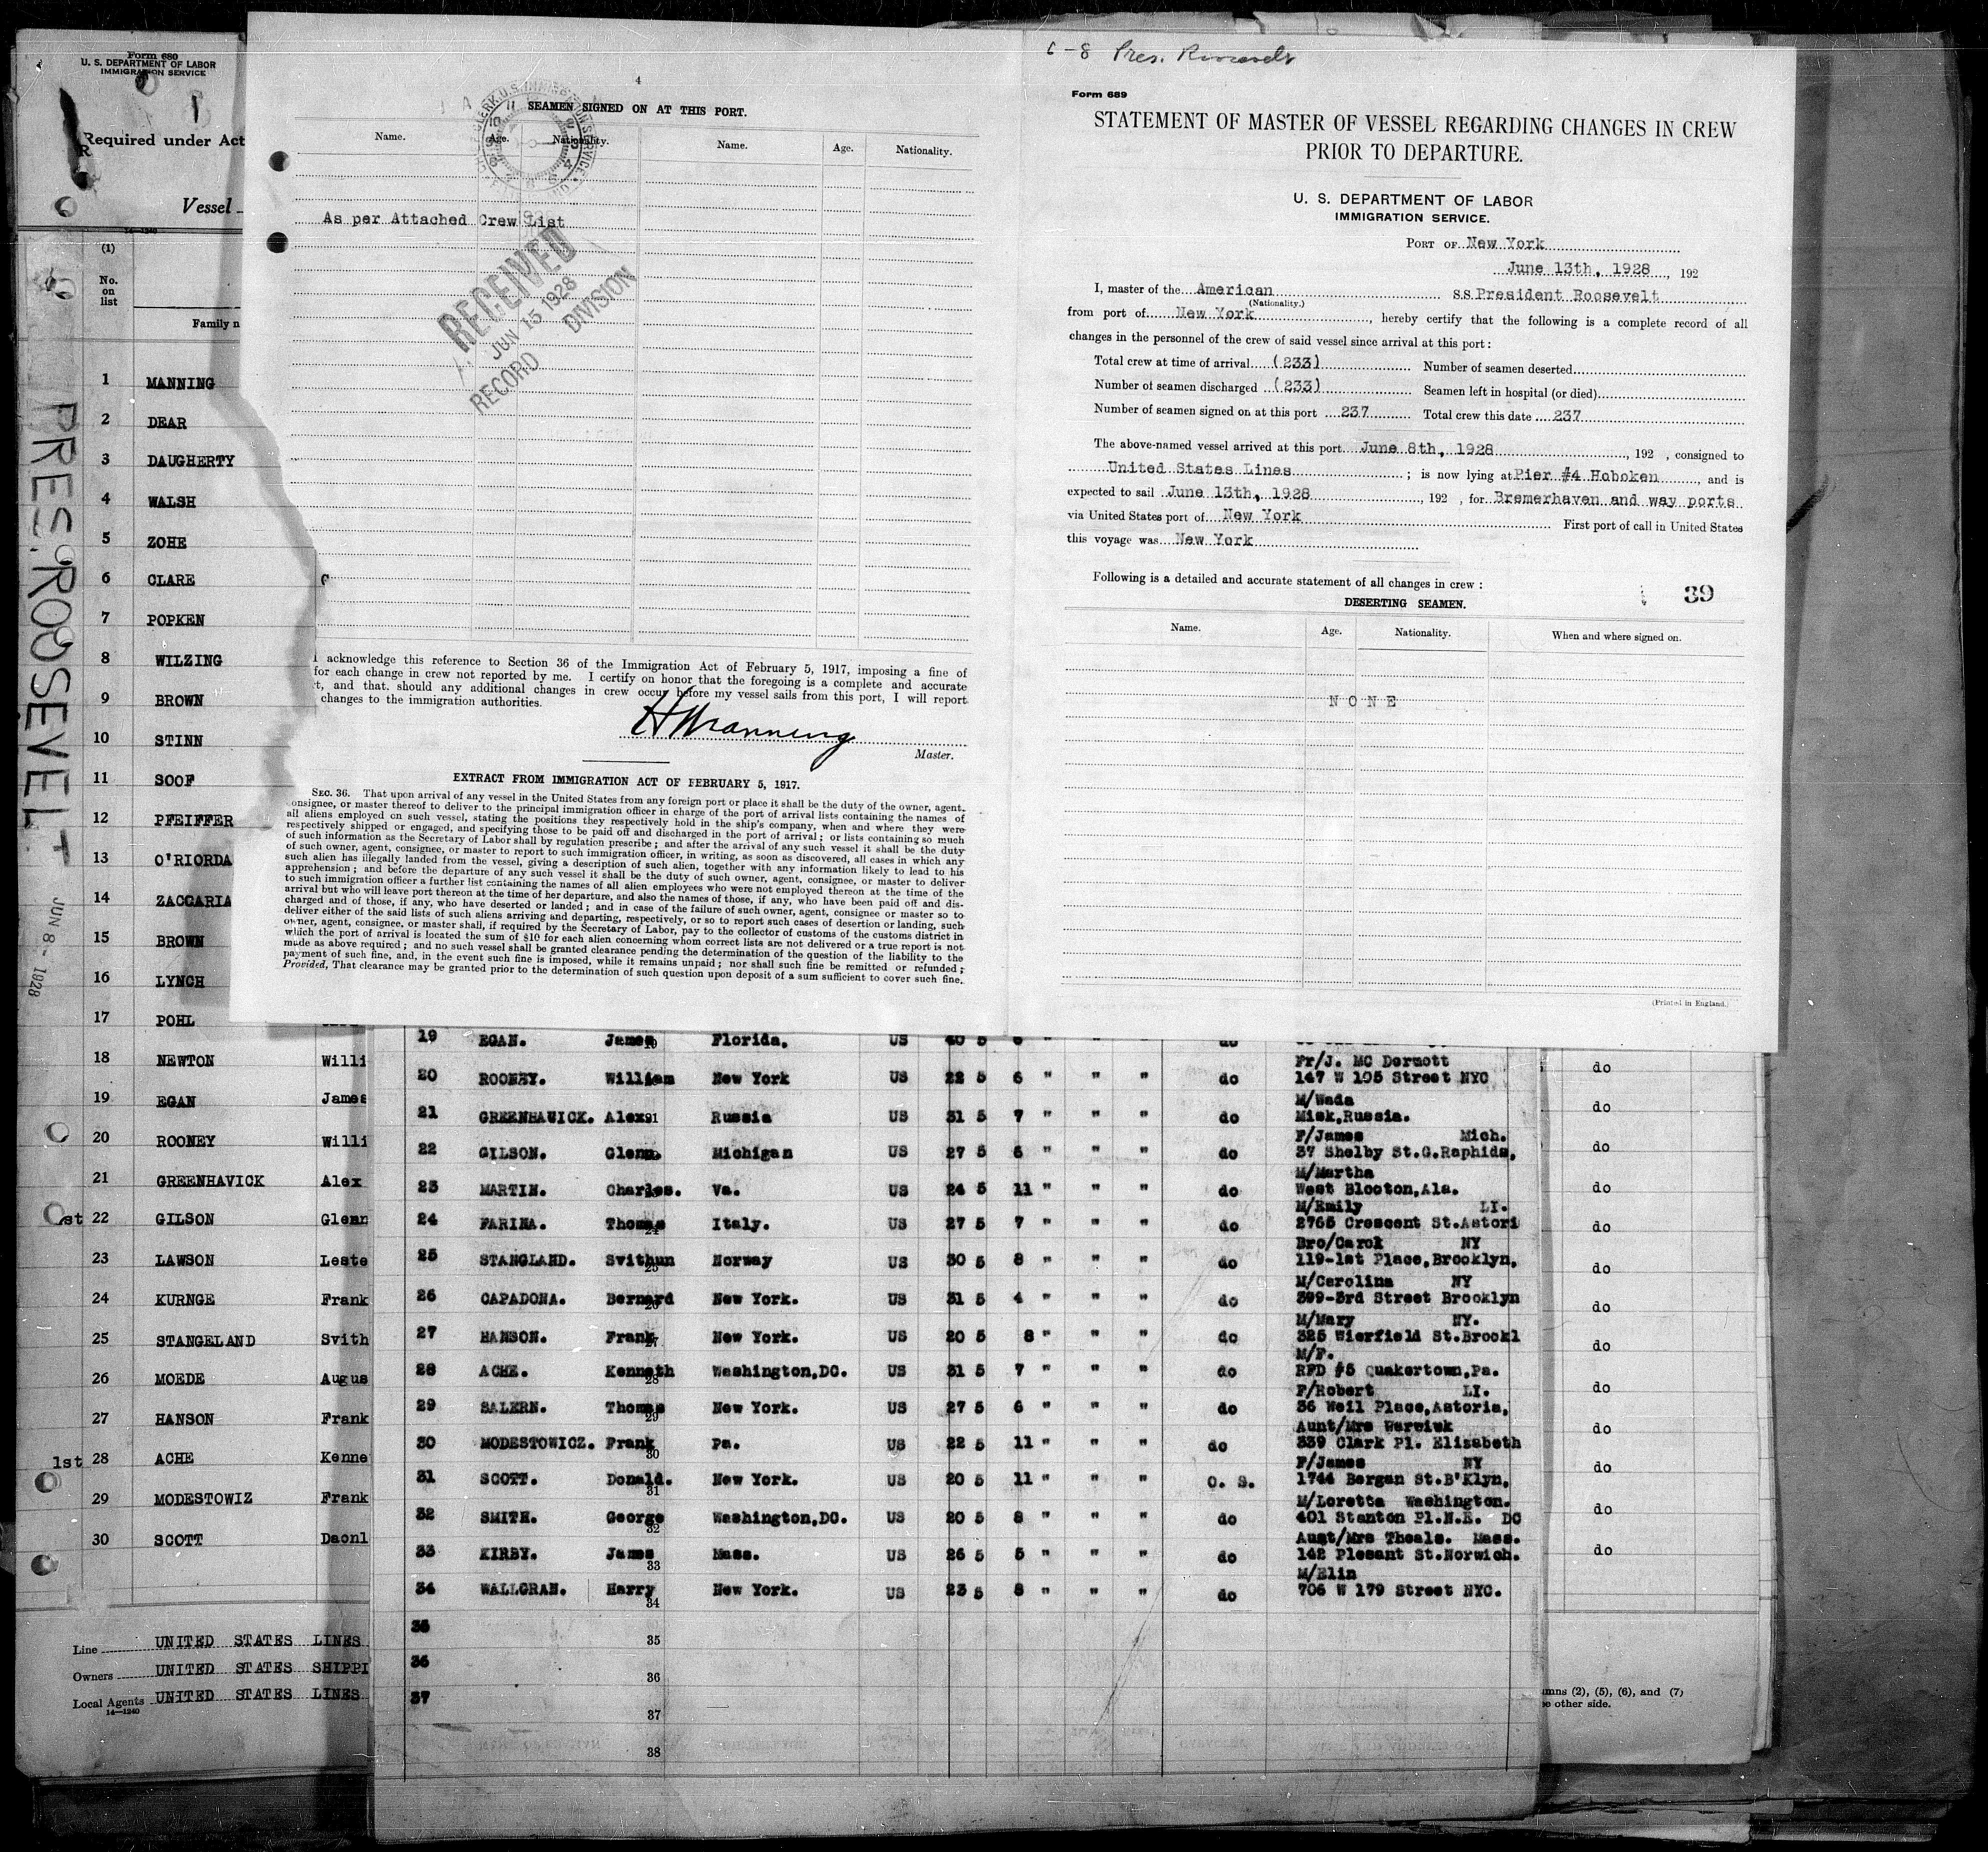 Form 680
U. S. DEPARTMENT OF LABOR
IMMIGRATION SERVICE
Required under Act
Vessel
(1)
No.
on
list
Family n
1 MANNING
2 DEAR
3 DAUGHERTY
4 WALSH
5 ZOHE
6 CLARE
7 POPKEN
8 WILZING
9 BROWN
10 STINN
11 SOOF
12 PFEIFFER
13 O'RIORDA
14 ZACCARIA
15 BROWN
16 LYNCH
17 POHL
18 NEWTON Willi
19 EGAN James
20 ROONEY Willi
21 GREENHAVICK Alex
st 22 GILSON Glenn
23 LAWSON Leste
24 KURNGE Frank
25 STANGELAND Svith
26 MOEDE Augus
27 HANSON Frank
1st 28 ACHE Kenne
29 MODESTOWIZ Frank
30 SCOTT Daonl
Line UNITED STATES LINES
Owners UNITED STATES SHIPPI
Local Agents UNITED STATES LINES
14—1240
PRES. ROOSEVELT
JUN 8 - 1928
4
SEAMEN SIGNED ON AT THIS PORT.
Name. Age. Nationality. Name. Age. Nationality.
As per Attached Crew List
RECEIVED
JUN 15 1928
RECORD DIVISION
I acknowledge this reference to Section 36 of the Immigration Act of February 5, 1917, imposing a fine of
for each change in crew not reported by me. I certify on honor that the foregoing is a complete and accurate
t, and that should any additional changes in crew occur before my vessel sails from this port, I will report
changes to the immigration authorities.
H Manning
Master.
EXTRACT FROM IMMIGRATION ACT OF FEBRUARY 5, 1917.
SEC. 36. That upon arrival of any vessel in the United States from any foreign port or place it shall be the duty of the owner, agent,
consignee, or master thereof to deliver to the principal immigration officer in charge of the port of arrival lists containing the names of
all aliens employed on such vessel, stating the positions they respectively hold in the ship's company, when and where they were
respectively shipped or engaged, and specifying those to be paid off and discharged in the port of arrival; or lists containing so much
of such information as the Secretary of Labor shall by regulation prescribe; and after the arrival of any such vessel it shall be the duty
of such owner, agent, consignee, or master to report to such immigration officer, in writing, as soon as discovered, all cases in which any
such alien has illegally landed from the vessel, giving a description of such alien, together with any information likely to lead to his
apprehension; and before the departure of any such vessel it shall be the duty of such owner, agent, consignee, or master to deliver
to such immigration officer a further list containing the names of all alien employees who were not employed thereon at the time of the
arrival but who will leave port thereon at the time of her departure, and also the names of those, if any, who have been paid off and dis-
charged and of those, if any, who have deserted or landed; and in case of the failure of such owner, agent, consignee or master so to
deliver either of the said lists of such aliens arriving and departing, respectively, or so to report such cases of desertion or landing, such
owner, agent, consignee, or master shall, if required by the Secretary of Labor, pay to the collector of customs of the customs district in
which the port of arrival is located the sum of $10 for each alien concerning whom correct lists are not delivered or a true report is not
made as above required; and no such vessel shall be granted clearance pending the determination of the question of the liability to the
payment of such fine, and, in the event such fine is imposed, while it remains unpaid; nor shall such fine be remitted or refunded;
Provided, That clearance may be granted prior to the determination of such question upon deposit of a sum sufficient to cover such fine.
6-8 Pres. Roosevelt
Form 689
STATEMENT OF MASTER OF VESSEL REGARDING CHANGES IN CREW
PRIOR TO DEPARTURE.
U. S. DEPARTMENT OF LABOR
IMMIGRATION SERVICE.
PORT OF New York
June 13th, 1928, 192
I, master of the American SS President Roosevelt
(Nationality.)
from port of New York, hereby certify that the following is a complete record of all
changes in the personnel of the crew of said vessel since arrival at this port:
Total crew at time of arrival (233) Number of seamen deserted
Number of seamen discharged (233) Seamen left in hospital (or died)
Number of seamen signed on at this port 237 Total crew this date 237
The above-named vessel arrived at this port June 8th, 1928, 192 , consigned to
United States Lines; is now lying at Pier #4 Hoboken, and is
expected to sail June 13th, 1928, 192 , for Bremerhaven and way ports
via United States port of New York First port of call in United States
this voyage was New York
Following is a detailed and accurate statement of all changes in crew:
39
DESERTING SEAMEN.
Name. Age. Nationality. When and where signed on.
N O N E
(Printed in England.)
19 EGAN. James Florida, US 40 5 6 " " " do
Fr/J. MC Dermott
20 ROONEY. William New York US 22 5 6 " " " do 147 W 195 Street NYC do
M/Wada
21 GREENHAWICK. Alex Russia US 31 5 7 " " " do Misk,Russia. do
F/James Mich.
22 GILSON. Glenn Michigan US 27 5 6 " " " do 37 Shelby St.G.Raphids, do
M/Martha
23 MARTIN. Charles. Va. US 24 5 11 " " " do West Blocton,Ala. do
M/Emily LI.
24 FARINA. Thomas Italy. US 27 5 7 " " " do 2765 Crescent St.Astori do
Bro/Carok NY
25 STANGLAND. Svithun Norway US 30 5 8 " " " do 119-1st Place,Brooklyn, do
M/Carolina NY
26 CAPADONA. Bernard New York. US 31 5 4 " " " do 399-3rd Street Brooklyn do
M/Mary NY.
27 HANSON. Frank New York. US 20 5 8 " " " do 325 Wierfield St.Brookl do
M/F.
28 ACHE. Kenneth Washington,DC. US 31 5 7 " " " do RFD #5 Quakertown,Pa. do
F/Robert LI.
29 SALERN. Thomas New York. US 27 5 6 " " " do 36 Weil Place,Astoria, do
Aunt/Mrs Warwiuk
30 MODESTOWICZ. Frank Pa. US 22 5 11 " " " do 339 Clark Pl. Elizabeth do
F/James NY
31 SCOTT. Donald. New York. US 20 5 11 " " " O. S. 1744 Bergan St.B'Klyn, do
M/Loretta Washington.
32 SMITH. George Washington,DC. US 20 5 8 " " " do 401 Stanton Pl.N.E. DC do
Aunt/Mrs Theals. Mass.
33 KIRBY. James Mass. US 26 5 5 " " " do 142 Plesant St.Norwich. do
M/Elin
34 WALLGRAN. Harry New York. US 23 5 8 " " " do 706 W 179 Street NYC.
35 35
36 36
37 37
38
umns (2), (5), (6), and (7)
o other side.